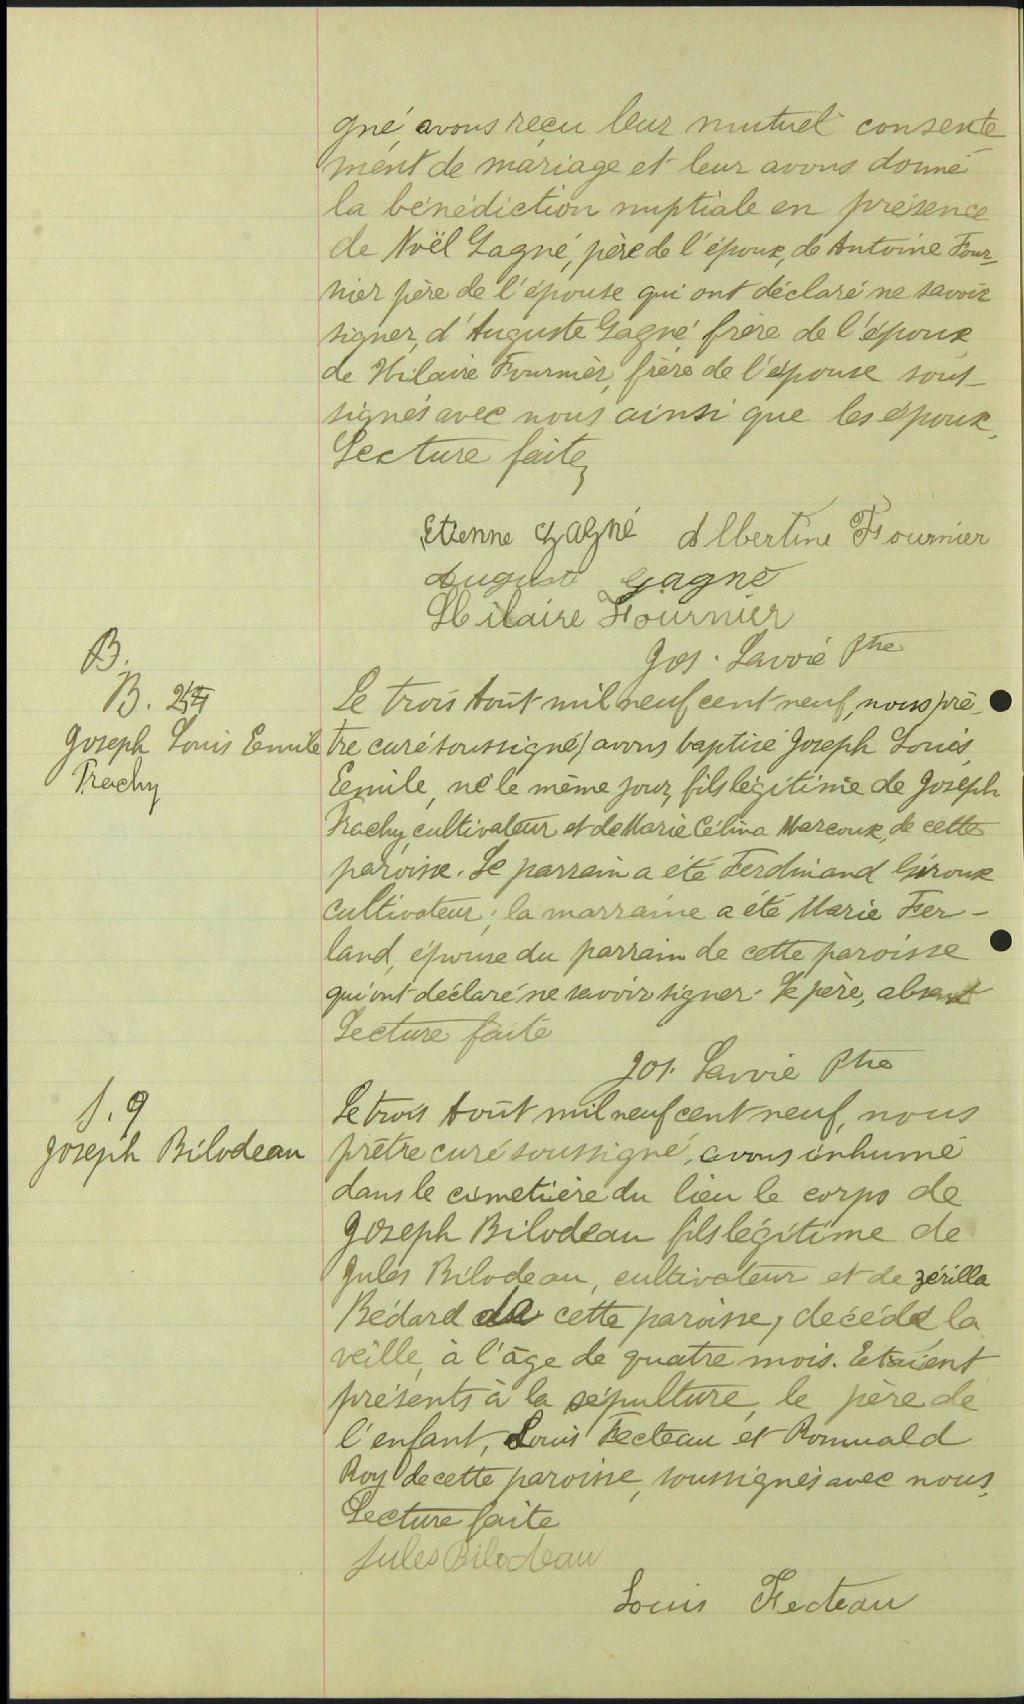 gné, avons reçu leur mutuel consente
ment de mariage et leur avons donné
la bénédiction nuptiale en présence
de Noël Gagné, père de l'époux, de Antoine Four-
nier père de l'épouse qui ont déclaré ne savoir
signer, d'Auguste Gagné frère de l'époux,
de Hilaire Fournier, frère de l'épouse sous-
signés avec nous ainsi que les époux.
Lecture faite,
Etienne Gagné Albertine Fournier
August Gagné
Hilaire Fournier
Jos. Lavoie Ptre
B.
B.
Joseph Louis Emile
Trachy
Le trois Août mil neuf cent neuf, nous prê-
tre curé soussigné, avons baptisé Joseph Louis
Emile, né le même jour, fils légitime de Joseph
Trachy, cultivateur et de Marie Célina Marcoux, de cette
paroisse. Le parrain a été Ferdinand Giroux
cultivateur; la marraine a été Marie Fer-
land, épouse du parrain de cette paroisse
qui ont déclaré ne savoir signer. Le père, absent
Lecture faite
Jos. Lavoie Ptre
S. 9
Joseph Bilodeau
Le trois Août mil neuf cent neuf, nous
prêtre curé soussigné, avons inhumé
dans le cimetière du lieu le corps de
Joseph Bilodeau fils légitime de
Jules Bilodeau, cultivateur et de Zérilla
Bédard de cette paroisse, décédé la
veille, à l'âge de quatre mois. Etaient
présents à la sépulture, le père de
l'enfant, Louis Fecteau et Romuald
Roy de cette paroisse, soussignés avec nous.
Lecture faite
Jules Bilodeau
Louis Fecteau